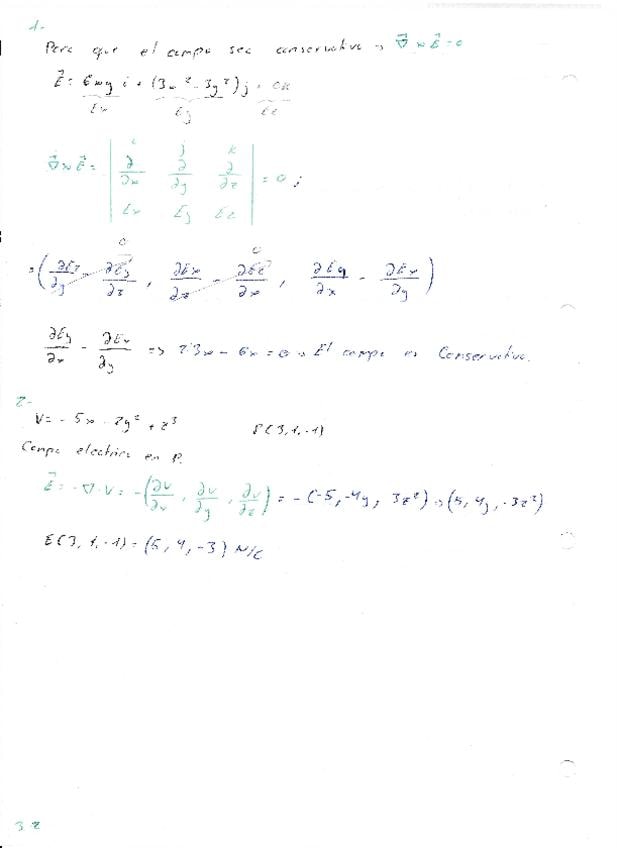 1-
Para que el campo sea conservativo → ∇ x E = 0
E = 6xy i + (3x² - 3y²) j + 0k
Ex Ey Ez
i j k
∇ x E = | ∂/∂x ∂/∂y ∂/∂z | = 0 ;
Ex Ey Ez
0 0
→ (∂Ez/∂y - ∂Ey/∂z , ∂Ex/∂z - ∂Ez/∂x , ∂Ey/∂x - ∂Ex/∂y)
∂Ey/∂x - ∂Ex/∂y => 2·3x - 6x = 0 → El campo es Conservativo.
2-
V = - 5x - 2y² + z³ P(3,1,-1)
Campo electrico en P.
E = -∇·V = -(∂V/∂x , ∂V/∂y , ∂V/∂z) = - (-5, -4y, 3z²) → (5, 4y, -3z²)
E(3,1,-1) = (5, 4, -3) N/C
32